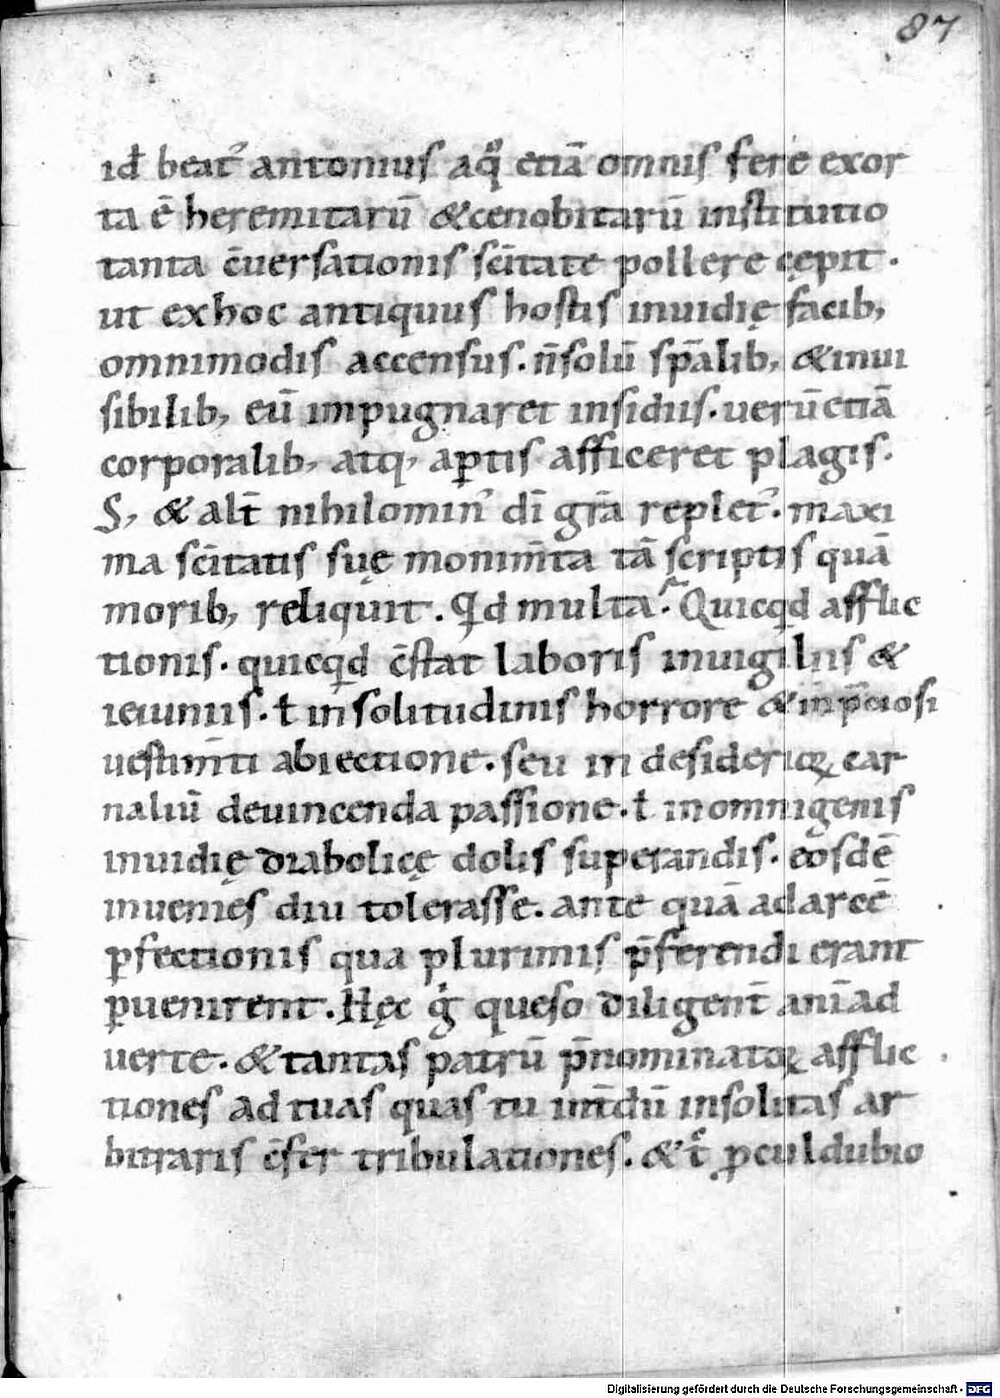 87
id̄ beat᾽ antonius a q͛ etiā omnis fere exor
ta ē heremitarū & cenobitarū institutio
tanta c̄uersationis sc̄itate pollere cępit.
ut ex hoc antiquus hostis inuidię facib;
omnimodis accensus. n̄ solū sp̄alib; & inui
sibilib; eū impugnaret insidiis. uerū etiā
corporalib; atq; aꝑtis afficeret plagis.
S; & alt̄ nihilomin᾽ dī gr̄a replet᾽. maxi
ma sc̄itatis suę monim̄ta tā scriptis quā
morib; reliquit. Qd multa? Quicqd afflic
tionis. quicqd c̄stat laboris in uigiliis &
ieiuniis. ł in solitudinis horrore & in p̄ciosi
uestim̄ti abiectione. seu in desiderioꝝ car
naliū deuincenda passione. ł in omnigenis
inuidię diabolicę dolis superandis. eosdē
inuenies diu tolerasse. ante quā ad arcē
ꝑfectionis qua plurimis p̄ferendi erant
ꝑuenirent. Hęc g̊ queso diligent̄ anīad
uerte. & tantas patrū p̄nominatoꝝ afflic
tiones ad tuas quas tu int̄dū insolitas ar
bitraris c̄fer tribulationes. & t̄ ꝓcul dubio
Digitalisierung gefördert durch die Deutsche Forschungsgemeinschaft - DFG